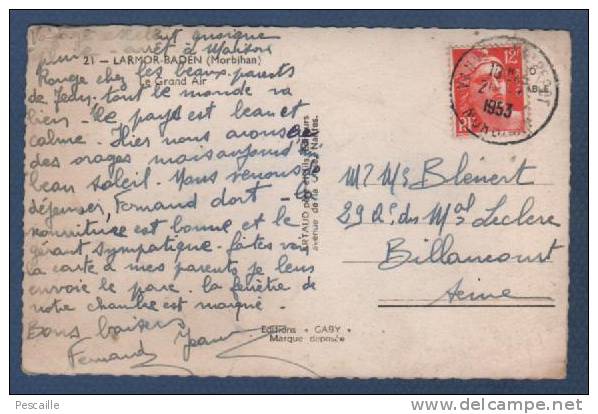 Voyage excellent quoique
un arrêt à Maison
21 — LARMOR-BADEN (Morbihan)
Le Grand Air
Rouge chez les beaux-parents
de Jean. tout le monde va
bien. Le pays est beau et
calme. Hier nous avons eu
des orages mais aujourd'
beau soleil. Nous venons
déjeuner, Fernand dort - la
nourriture est bonne et le
gérant sympatique. faites voir
la carte à mes parents je leur
envoie le parc. la fenêtre de
notre chambre est marqué.
Bons baisers
Fernand Jeanne
ARTAUD père et fils, Éditeurs
avenue de la Close, Nantes.
Editions "GABY"
Marque déposée
12F
1953
MORBIHAN
Mr Mme Blénert
29 R. du Mal Leclerc
Billancourt
Seine
Pescaille
http://www.delcampe.net